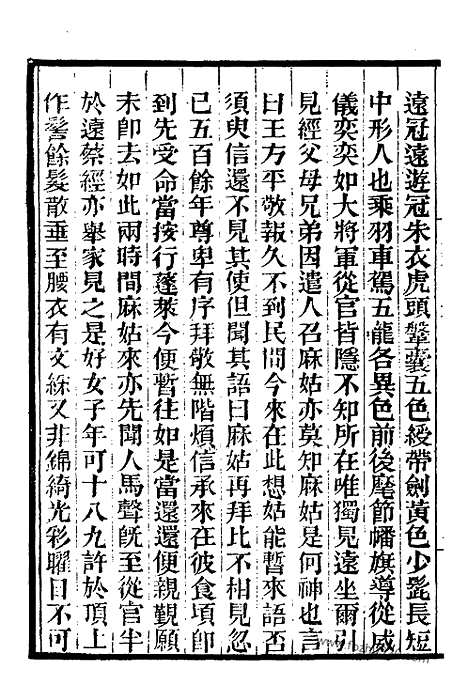 遠冠遠遊冠朱衣虎頭鞶囊五色綬帶劍黃色少髭長短
中形人也乘羽車駕五龍各異色前後麾節幡旗導從威
儀奕奕如大將軍從官皆隱不知所在唯獨見遠坐爾引
見經父母兄弟因遣人召麻姑亦莫知麻姑是何神也言
曰王方平敬報久不到民間今來在此想姑能暫來語否
須臾信還不見其使但聞其語曰麻姑再拜比不相見忽
已五百餘年尊卑有序拜敬無階煩信承來在彼食頃卽
到先受命當按行蓬萊今便暫往如是當還還便親覲願
未卽去如此兩時間麻姑來亦先聞人馬聲旣至從官半
於遠蔡經亦舉家見之是好女子年可十八九許於頂上
作髻餘髮散垂至腰衣有文綵又非錦綺光彩曜目不可